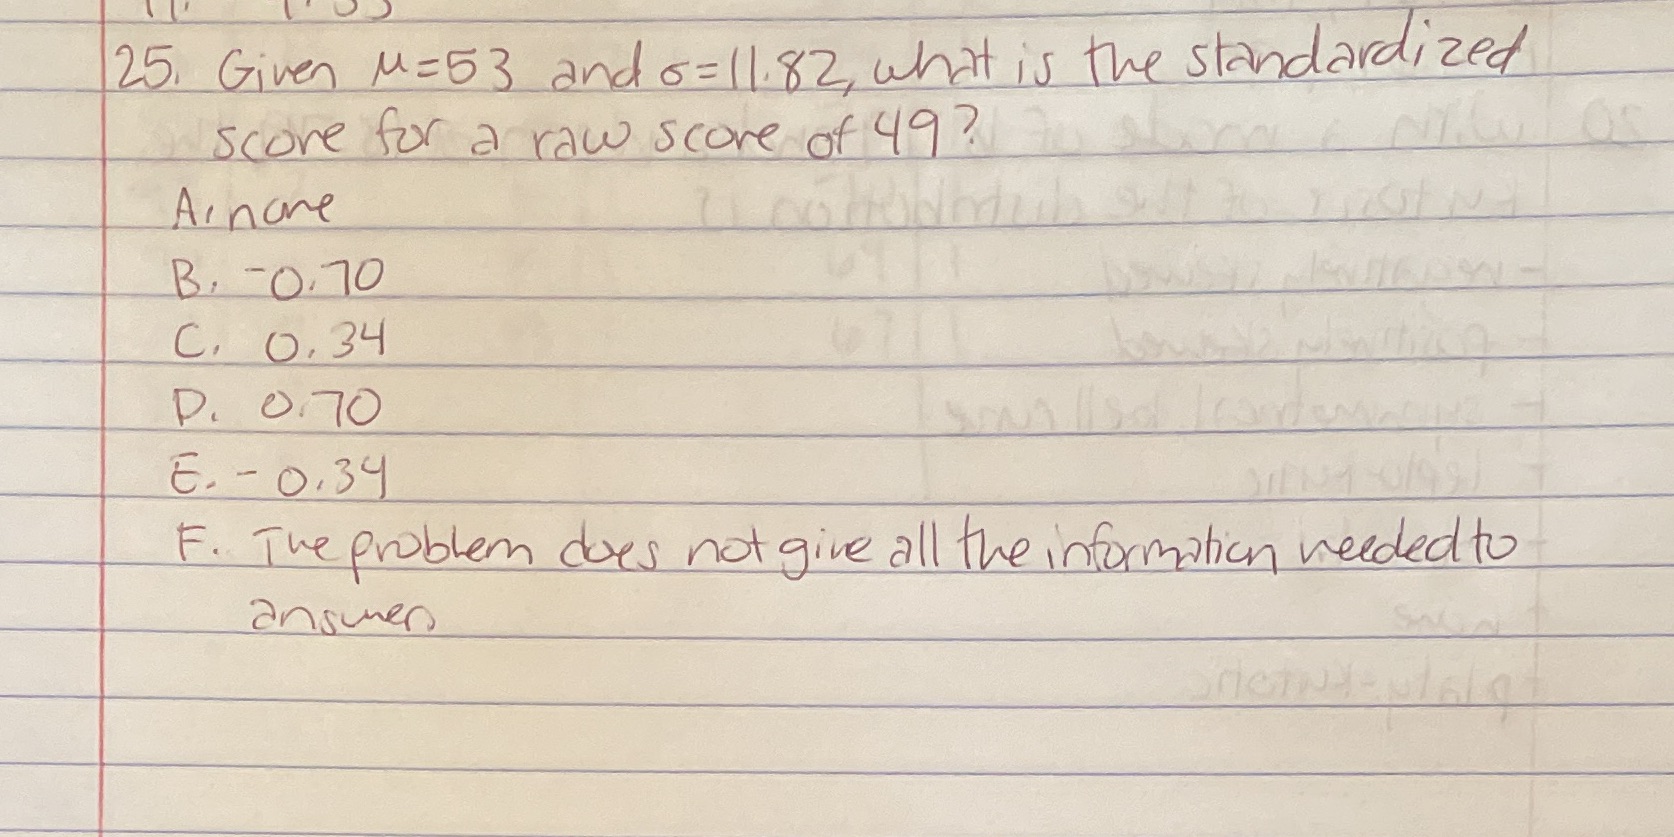 25. Given μ=53 and σ=11.82, what is the standardized
score for a raw score of 49?
A. none
B. -0.70
C. 0.34
D. 0.70
E. -0.34
F. The problem does not give all the information needed to
answer